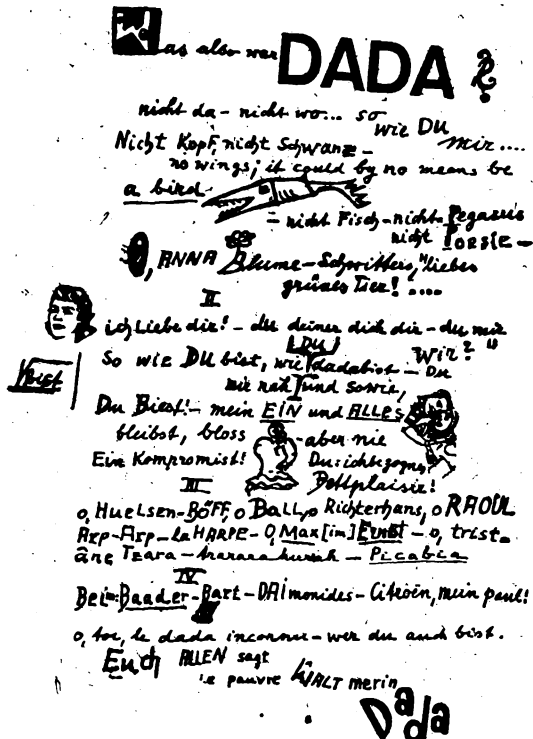 Was also war DADA?
nicht da – nicht wo... so
wie DU
mir....
Nicht Kopf, nicht Schwanz –
no wings; it could by no means be
a bird
– nicht Fisch – nicht Pegasus
nicht POESIE –
O, ANNA Blume – Schwitters, "liebes
grünes Tier!....
II
ich liebe dir! – du deiner dich dir – du mir
Wir?"
So wie DU bist, wie DU dadabist – Du
mir nah und sowie,
Du Biest! – mein EIN und ALLES
bleibst, bloss – aber nie
Ein Kompromist! Du: ichbezogne,
III
o, HUELSEN-BÖFF, o BALL, o Richterhans, o RAOUL
Arp – Arp – la HARPE – O, Max [im] Ernst – o, trist-
âne Tzara – Picabia
IV
Bei=Baader – Bart – DAImonides – Citroën, mein paul!
o, toi, le dada inconnu – wer du auch bist.
Euch ALLEN sagt
le pauvre WALT merin
Dada